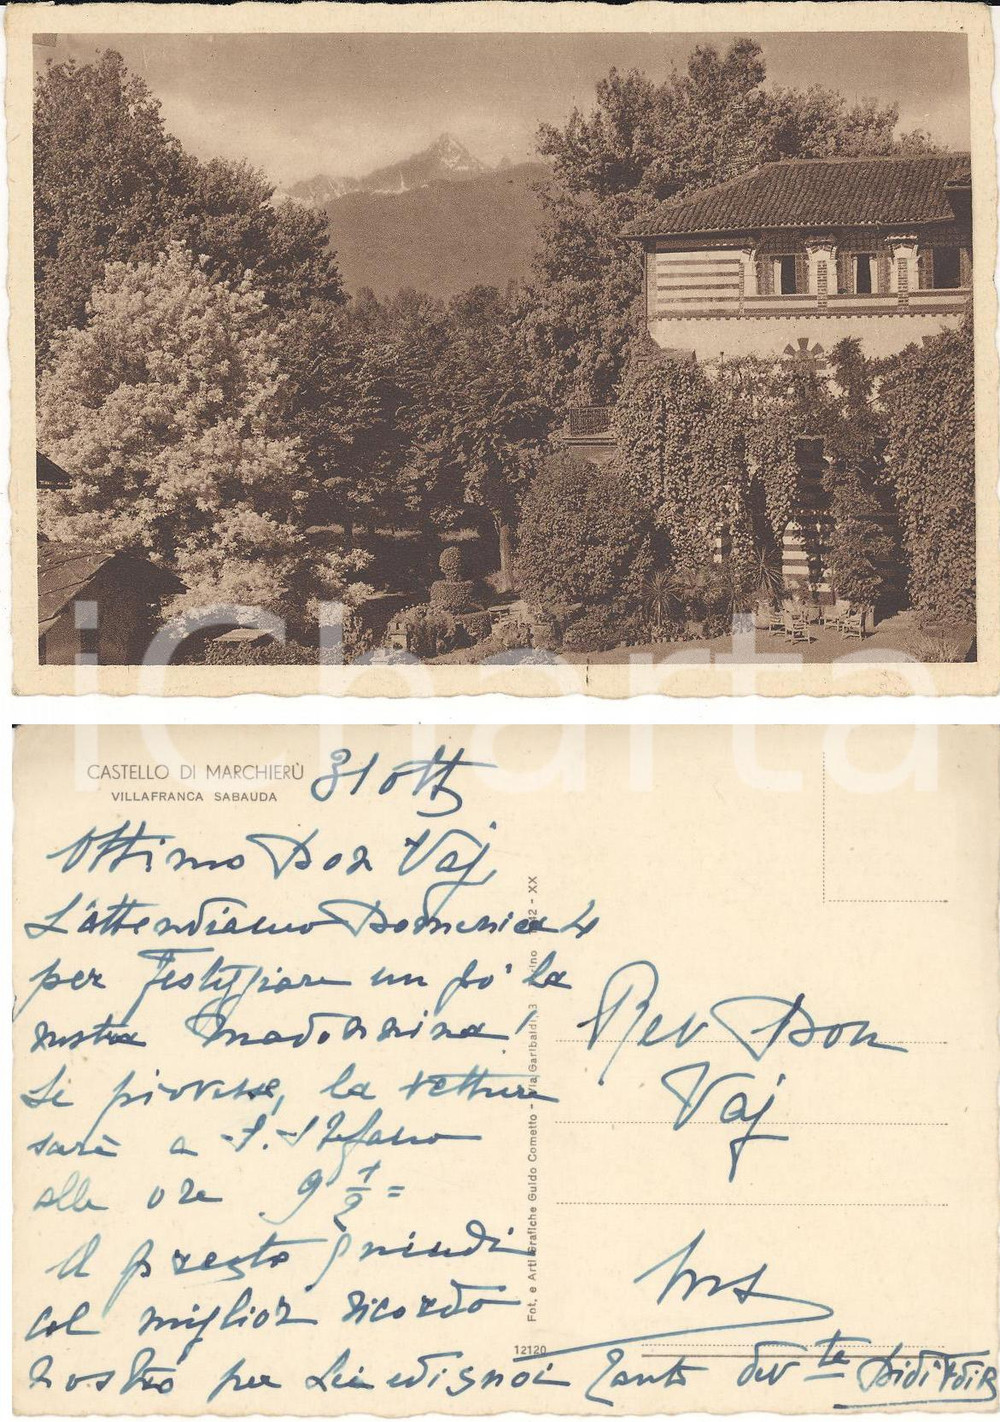 iCharta
CASTELLO DI MARCHIERÙ
VILLAFRANCA SABAUDA
31 ott
Ottimo Don Vaj,
L'attendiamo Domenica 4
per festeggiare un pò la
nostra Madonnina!
Se piovesse, la vettura
sarà a S. Stefano
alle ore 9 1/2 =
A presto quindi
col miglior ricordo
nostro per Lei e
dev te Didi
Rev Don
Vaj
Fot. e Arti Grafiche Guido Cometto - Via Garibaldi, 3
- XX
12120